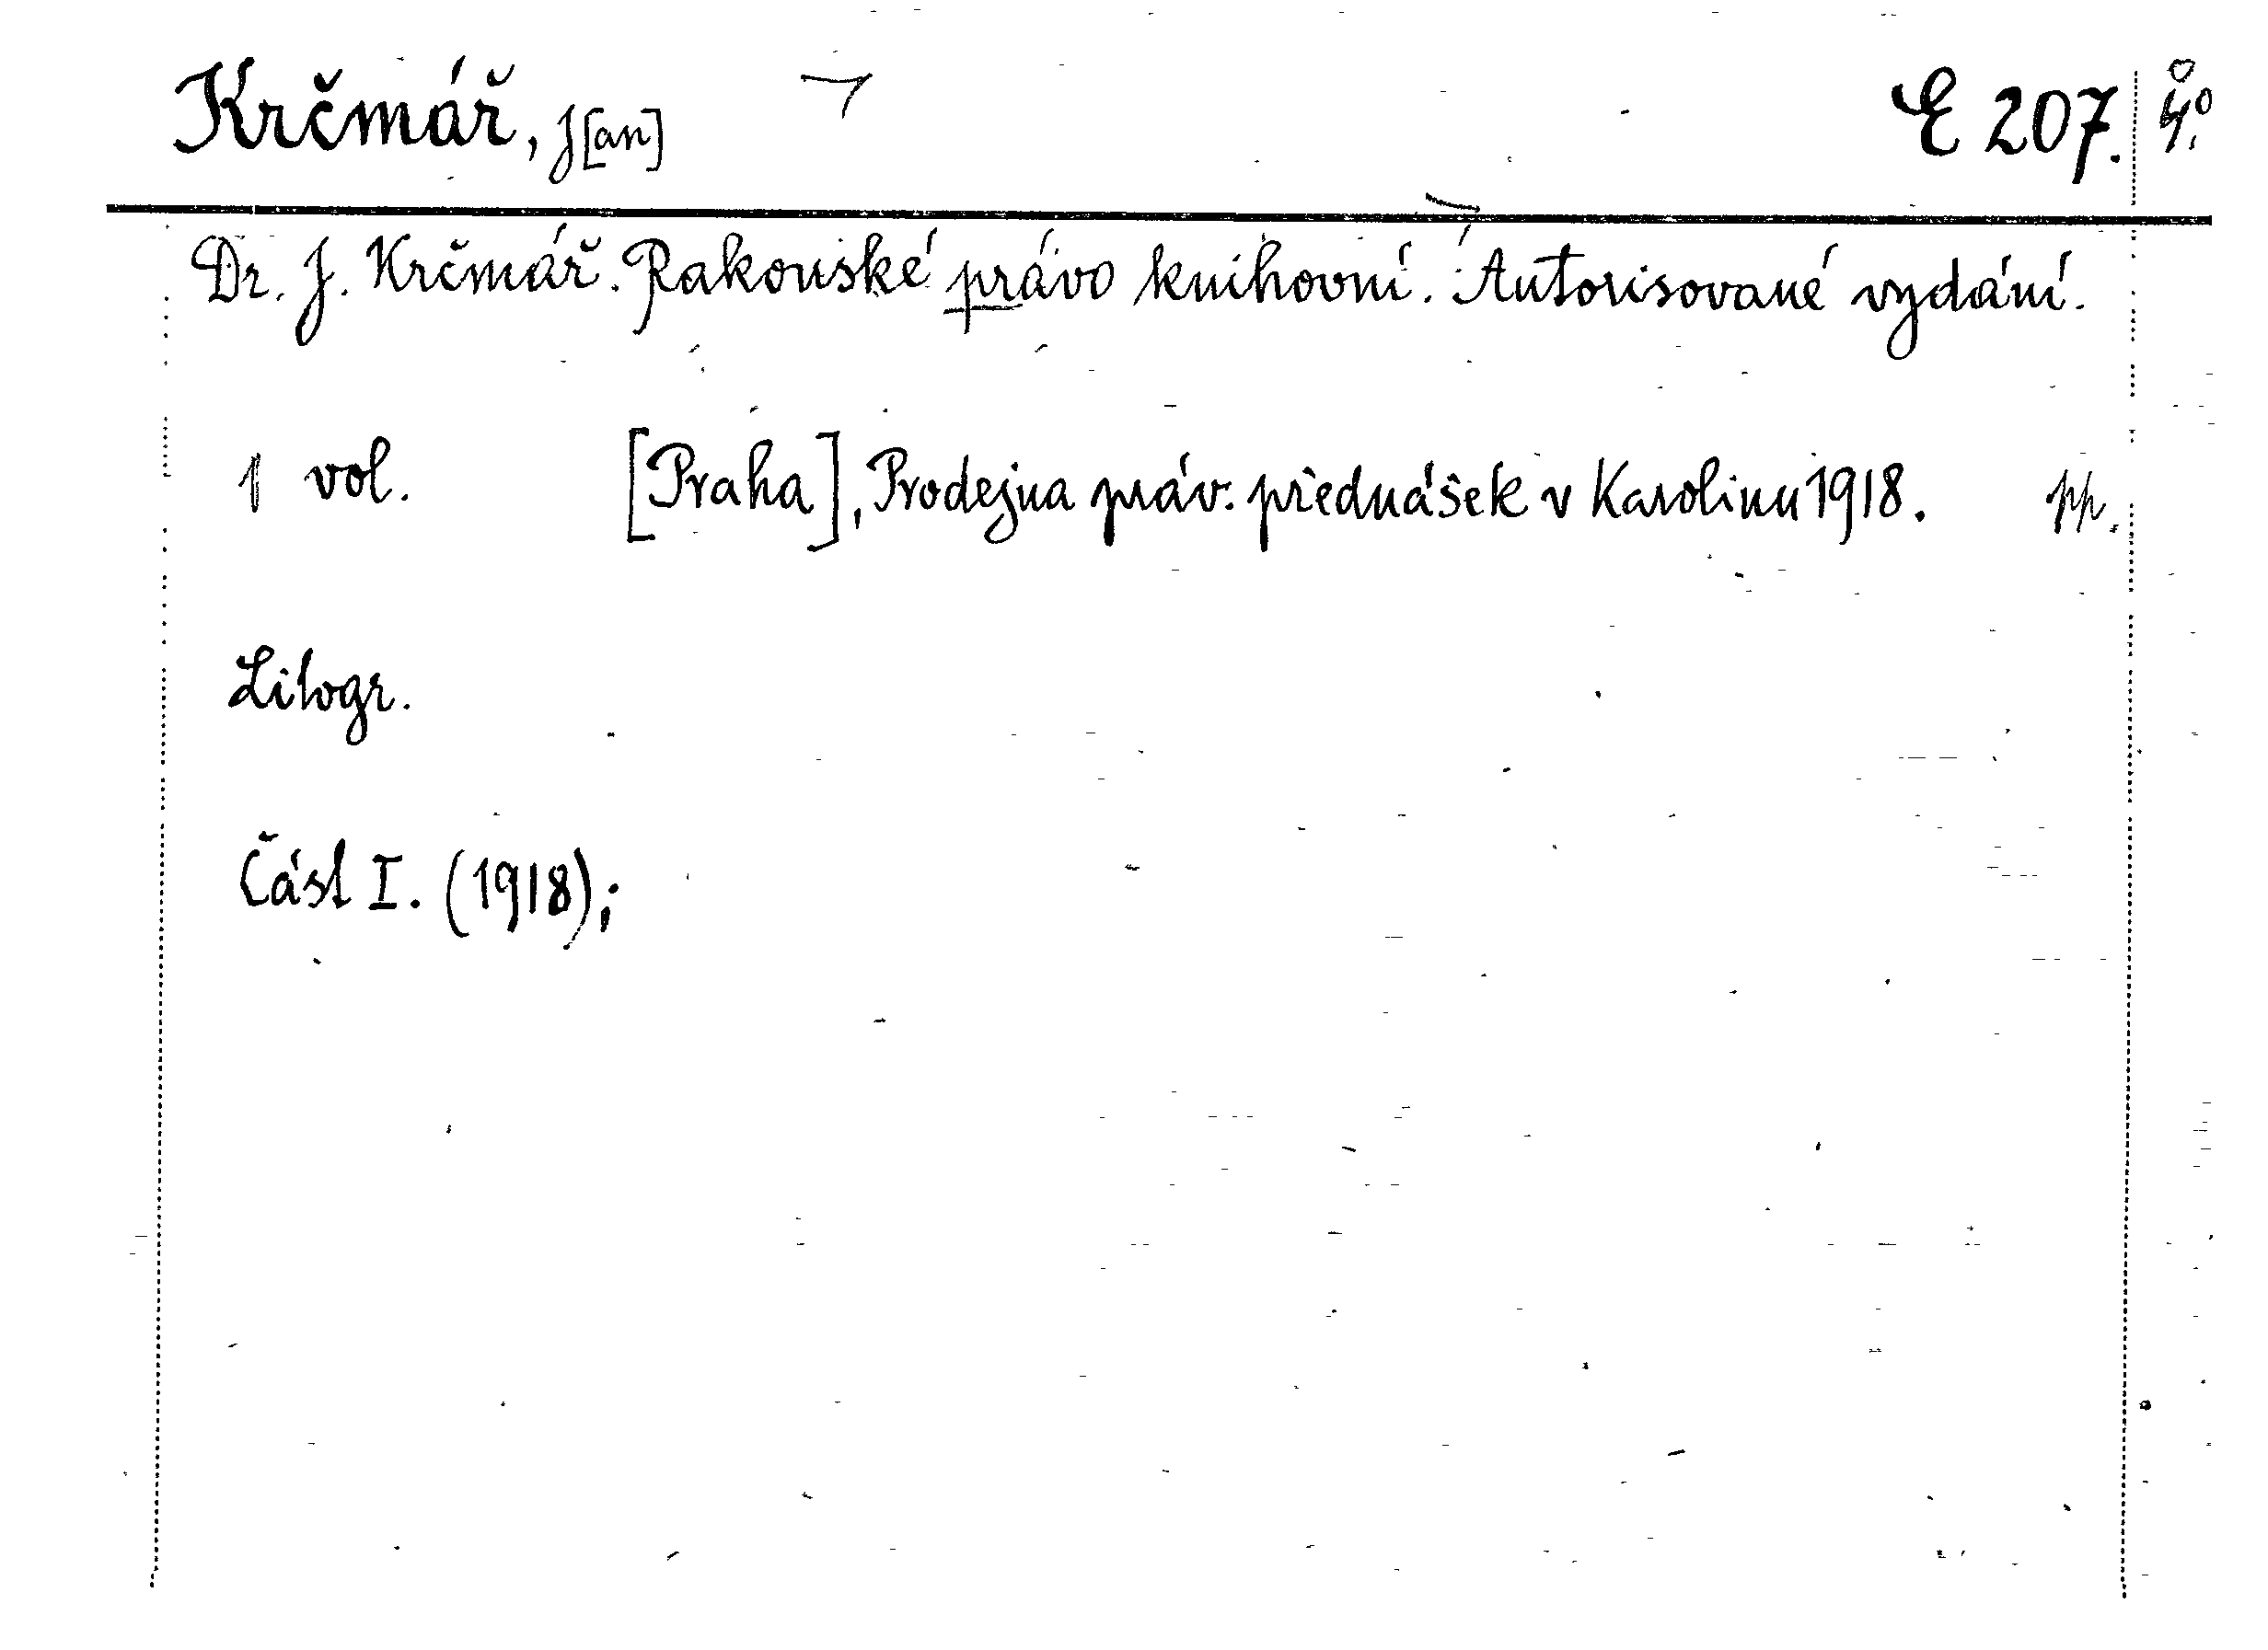 Krčmář, J[an] E 207. 4°.
Dr. J. Krčmář. Rakouské právo knihovní. Autorisované vydání.
1 vol. [Praha], Prodejna práv. přednášek v Karolinu 1918. pp.
Litogr.
Část I. (1918);